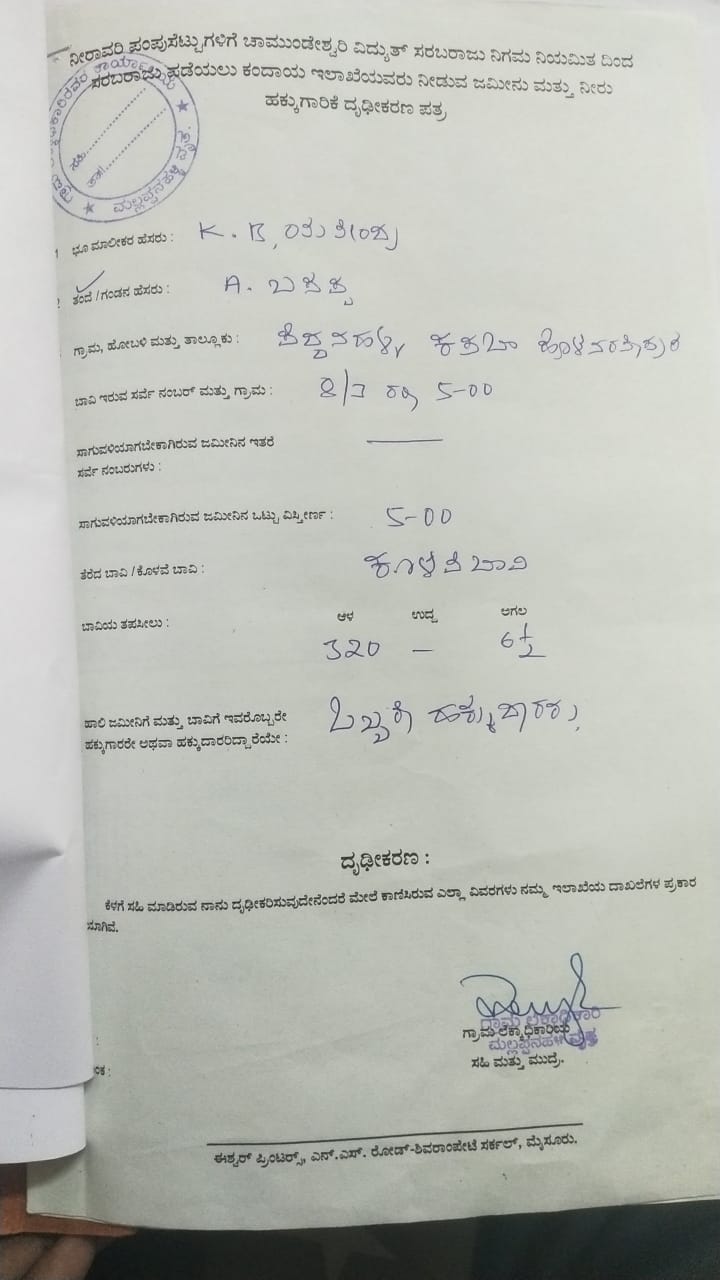 ನೀರಾವರಿ ಪಂಪುಸೆಟ್ಟುಗಳಿಗೆ ಚಾಮುಂಡೇಶ್ವರಿ ವಿದ್ಯುತ್ ಸರಬರಾಜು ನಿಗಮ ನಿಯಮಿತ ದಿಂದ
ಸರಬರಾಜು ಪಡೆಯಲು ಕಂದಾಯ ಇಲಾಖೆಯವರು ನೀಡುವ ಜಮೀನು ಮತ್ತು ನೀರು
ಹಕ್ಕುಗಾರಿಕೆ ದೃಢೀಕರಣ ಪತ್ರ
ಸಹಿ
ಮಲ್ಲಪ್ಪನಹಳ್ಳಿ ವೃತ್ತ.
1 ಭೂ ಮಾಲೀಕರ ಹೆಸರು : K. B,
ತಂದೆ / ಗಂಡನ ಹೆಸರು : A.
ಗ್ರಾಮ, ಹೋಬಳಿ ಮತ್ತು ತಾಲ್ಲೂಕು : ಕಸಬಾ ಹೊಳೆನರಸೀಪುರ
ಬಾವಿ ಇರುವ ಸರ್ವೆ ನಂಬರ್ ಮತ್ತು ಗ್ರಾಮ : 5-00
ಸಾಗುವಳಿಯಾಗಬೇಕಾಗಿರುವ ಜಮೀನಿನ ಇತರೆ
ಸರ್ವೆ ನಂಬರುಗಳು :
ಸಾಗುವಳಿಯಾಗಬೇಕಾಗಿರುವ ಜಮೀನಿನ ಒಟ್ಟು ವಿಸ್ತೀರ್ಣ : 5-00
ತೆರೆದ ಬಾವಿ / ಕೊಳವೆ ಬಾವಿ : ಕೊಳವೆ ಬಾವಿ
ಬಾವಿಯ ತಪಸೀಲು : ಆಳ ಉದ್ದ ಅಗಲ
320 — 6 1/2
ಹಾಲಿ ಜಮೀನಿಗೆ ಮತ್ತು ಬಾವಿಗೆ ಇವರೊಬ್ಬರೇ ಒಬ್ಬರೇ ಹಕ್ಕುದಾರರು,
ಹಕ್ಕುಗಾರರೇ ಅಥವಾ ಹಕ್ಕುದಾರರಿದ್ದಾರೆಯೇ :
ದೃಢೀಕರಣ :
ಕೆಳಗೆ ಸಹಿ ಮಾಡಿರುವ ನಾನು ದೃಢೀಕರಿಸುವುದೇನೆಂದರೆ ಮೇಲೆ ಕಾಣಿಸಿರುವ ಎಲ್ಲಾ ವಿವರಗಳು ನಮ್ಮ ಇಲಾಖೆಯ ದಾಖಲೆಗಳ ಪ್ರಕಾರ
ಗ್ರಾಮ ಲೆಕ್ಕಾಧಿಕಾರಿ
ಗ್ರಾಮ ಲೆಕ್ಕಾಧಿಕಾರಿಯ
ಮಲ್ಲಪ್ಪನಹಳ್ಳಿ ವೃತ್ತ
ಸಹಿ ಮತ್ತು ಮುದ್ರೆ.
ಈಶ್ವರ್ ಪ್ರಿಂಟರ್ಸ್, ಎನ್.ಎಸ್. ರೋಡ್-ಶಿವರಾಂಪೇಟೆ ಸರ್ಕಲ್, ಮೈಸೂರು.